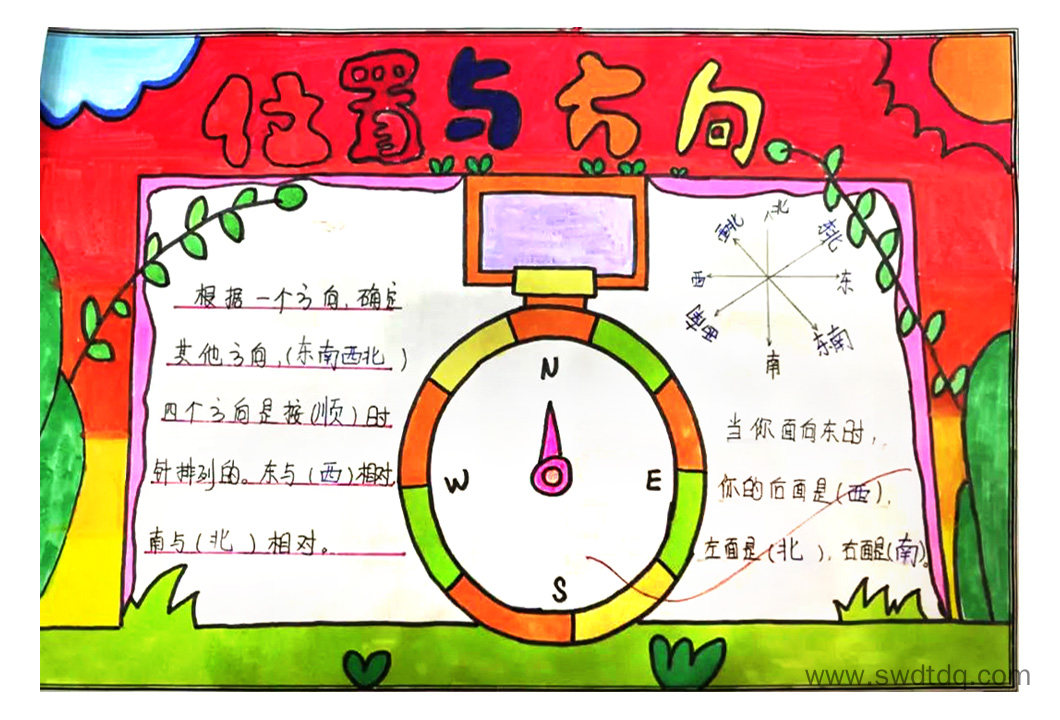 位置与方向
根据一个方向，确定
其他方向，(东南西北)
四个方向是按(顺)时
针排列的。东与(西)相对，
南与(北)相对。
N
W
E
S
西北
北
东北
西
东
西南
南
东南
当你面向东时，
你的后面是(西)，
左面是(北)，右面是(南)。
www.swdtdq.com